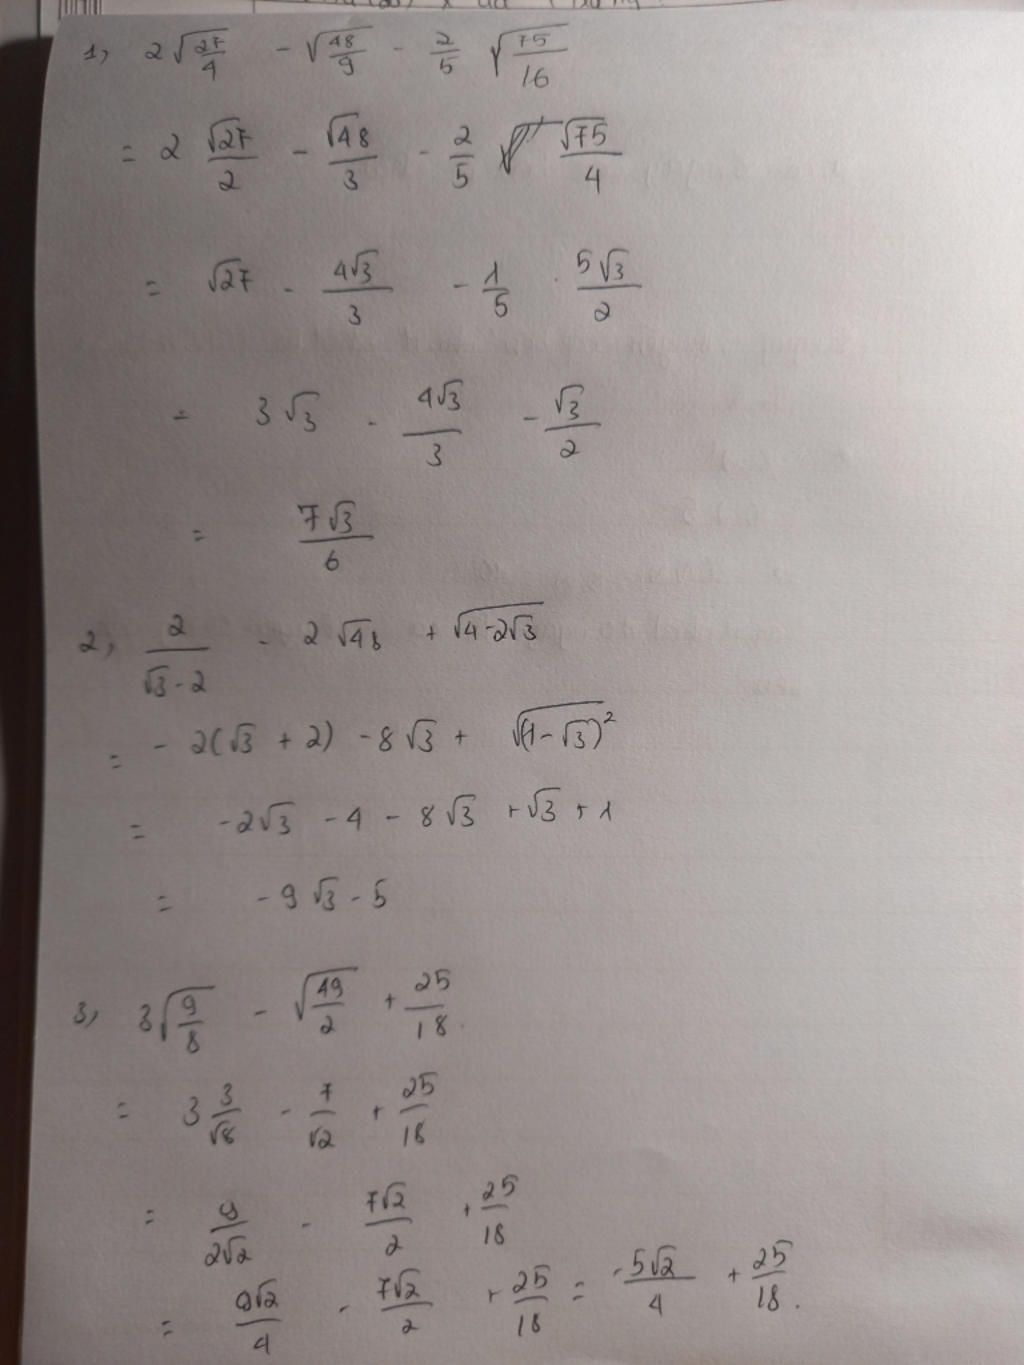 1, 2√(27/4) - √(48/9) - 2/5 √(75/16)
= 2 √27/2 - √48/3 - 2/5 √75/4
= √27 - 4√3/3 - 1/5 · 5√3/2
= 3√3 - 4√3/3 - √3/2
= 7√3/6
2, 2/(√3-2) - 2√48 + √(4-2√3)
= - 2(√3 + 2) - 8√3 + √((1-√3)²)
= -2√3 - 4 - 8√3 + √3 + 1
= -9√3 - 5
3, 3√(9/8) - √(49/2) + 25/18.
= 3 3/√8 - 7/√2 + 25/18
= 9/2√2 - 7√2/2 + 25/18
= 9√2/4 - 7√2/2 + 25/18 = -5√2/4 + 25/18.